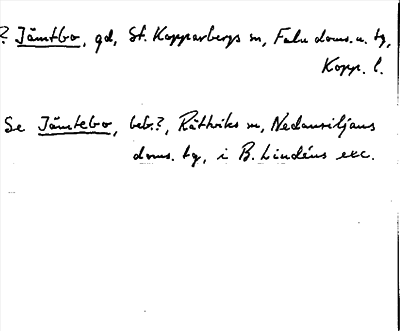 ? Jämtbo, gd, St. Kopparbergs sn, Falu doms. n. tg,
Kopp. l.
Se Jämtebo, beb.?, Rättviks sn, Nedansiljans
doms. tg, i B. Lindéns exc.